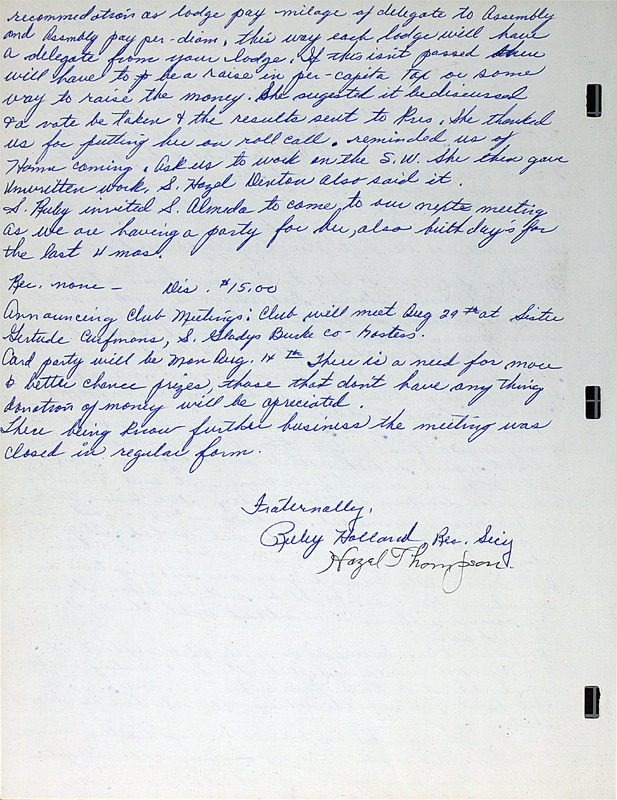 recommedation as lodge pay milage of delegate to Assembly
and Assmbly pay per-diam. this way each lodge will have
a delegate from your lodge. If this isn't passed there
will have to be a raise in per-capita Tax or some
way to raise the money. She sugested it be discussed
& a vote be taken & the results sent to Pres. She thanked
us for putting her on roll call. reminded us of
Home coming. Ask us to work on the S.W. She then gave
Unwritten work, S. Hazel Denton also said it.
S. Ruby invited S. Almeda to come to our next meeting
as we are having a party for her, also birthdays for
the last 4 mos.
Rec. none — Dis. $15.00
Announcing Club Meetings: Club will meet Aug 29th at Sister
Gertude S. Gladys Burke co-hostess.
Card party will be Mon Aug. 14th There is a need for more
& better chance prizes, those that dont have any thing
donation of money will be apreciated.
There being know further business the meeting was
closed in regular form.
Fraternally,
Ruby Holland, Rec. Secy
Hazel Thompson